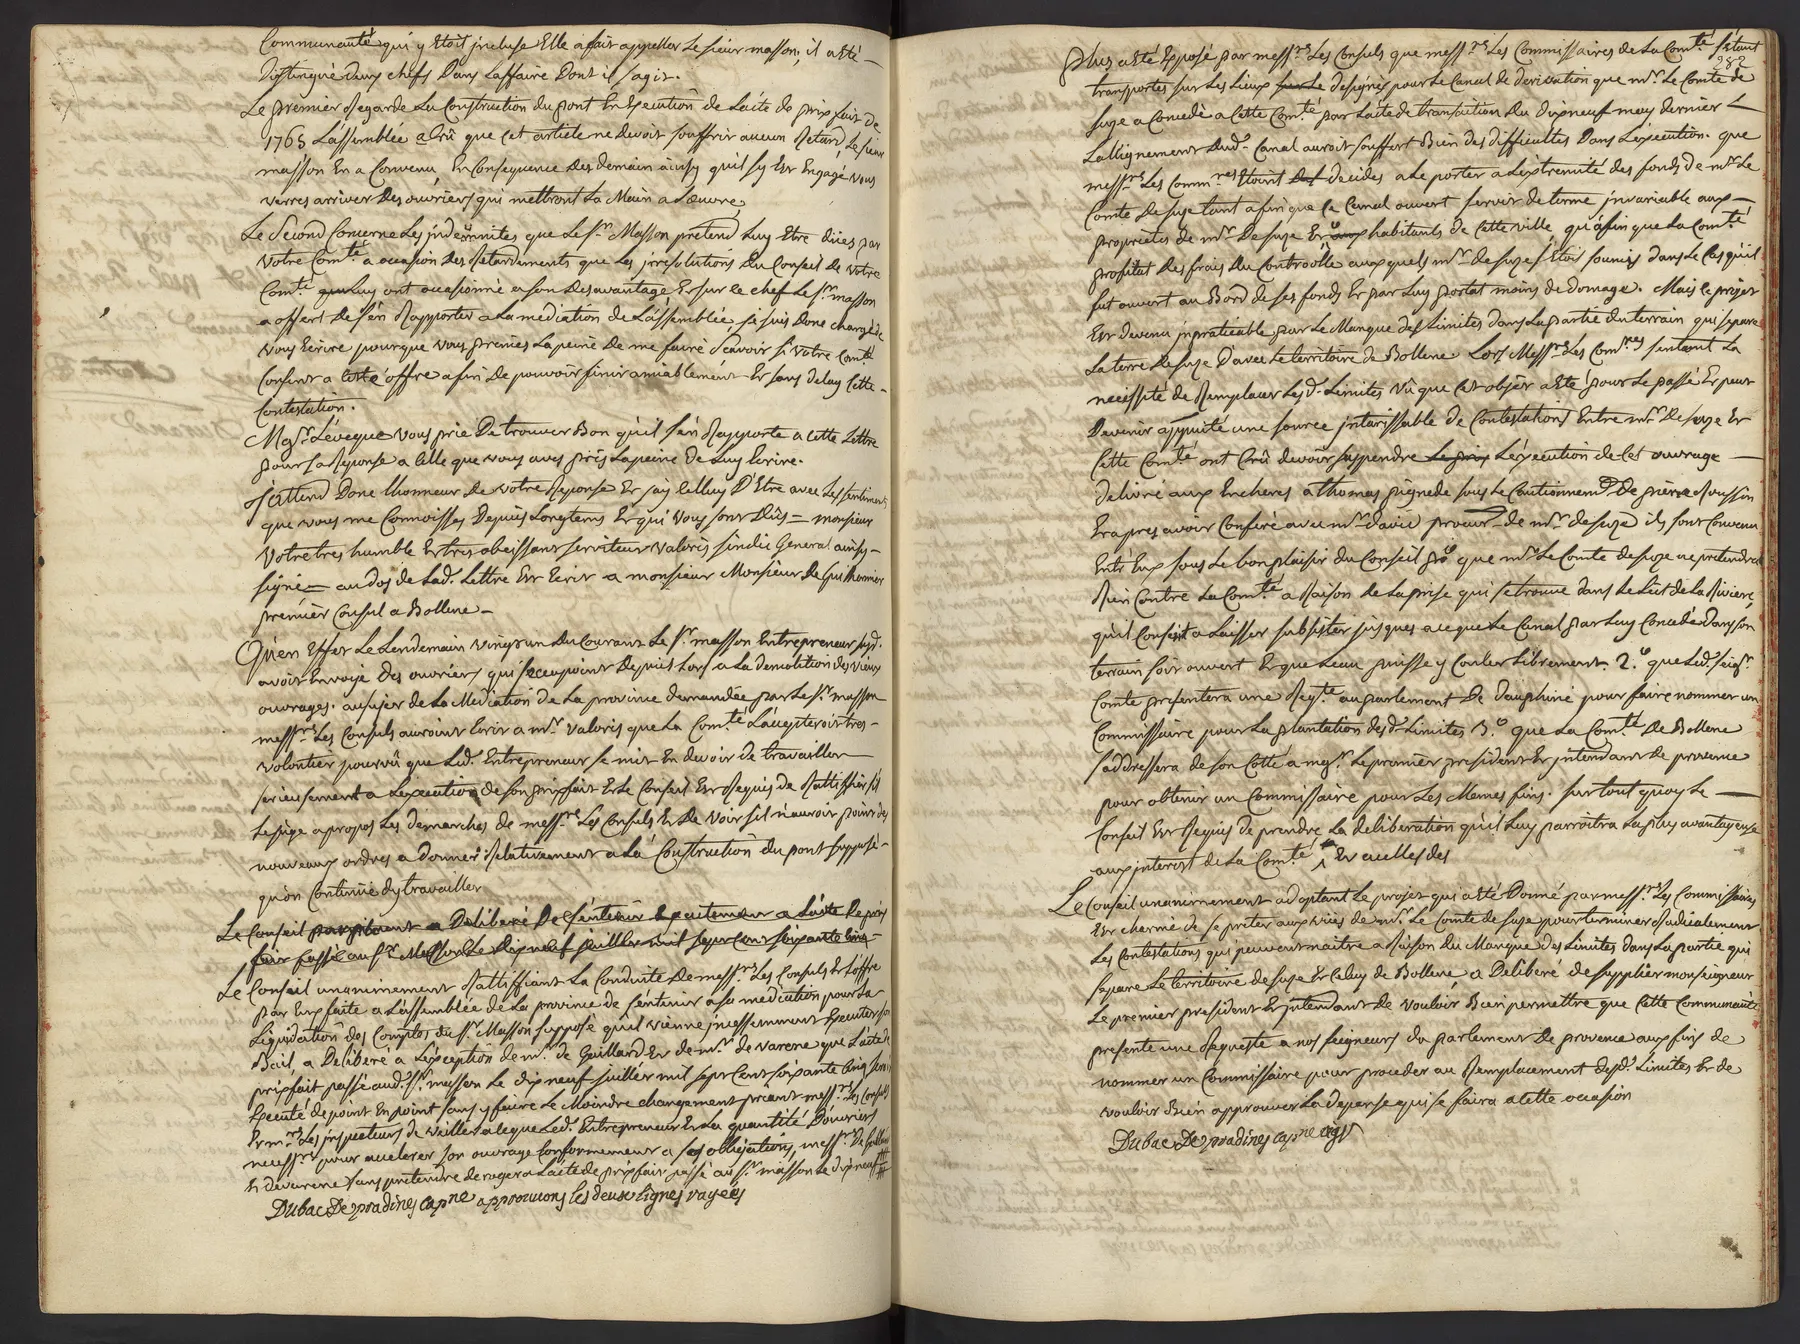 Communauté qui y Etoit jncluse Elle a fait appeller Le sieur masson, il a Eté
Distingué deux chefs Dans L'affaire Dont il s'agit.
Le premier Regarde La Construction du pont En Execution de L'acte de prix fait de
1765 L'assemblée a Crû que cet article ne Devoit souffrir aucun Retard, Le sieur
masson En a Convenu, En Consequence Des demain ainsy qu'il s'y Est Engagé vous
verres arriver Des ouvriers qui mettront La Main a L'œuvre,
Le Second Concerne Les jndemnites que Le Sr. Masson pretend Luy Etre dües par
votre Comté. a occasion Des Retardements que Les jrresolutions Du Conseil De votre
Comté. ont occasionné a son Desavantage Et sur ce chef Le Sr. masson
a offert De s'en Rapporter a La mediation de L'assemblée, je suis Donc chargé de
vous Ecrire pour que vous prenies La peine de me faire Scavoir si votre Comté.
Consent a Cette offre afin De pouvoir finir amiablement Et sans delay Cette
Contestation.
Mgr. L'éveque vous prie De trouver Bon qu'il s'en Rapporte a Cette Lettre
pour sa Reponse a Celle que vous aves pris La peine de Luy Ecrire.
J'attend Donc l'honneur De votre Reponse Et j'ay Celluy D'Etre avec Les sentiments
que vous me Connoisses Depuis Longtems Et qui vous sont Dûs = monsieur
votre tres humble Et tres obeissant serviteur valoris sindic General ainsy
signé = au dos de Lad. Lettre Est Ecrit a monsieur Monsieur De Guilhermier
premier Consul a Bollene
Qu'en Effet Le Lendemain vingt un du Courant Le Sr. masson Entrepreneur susd.
avoit Envoyé des ouvriers qui s'occupoint Depuis Lors a La demolition des vieux
ouvrages. au sujet de La Mediation de La province demandée par Le Sr. masson
messrs. Les Consuls auroint Ecrit a mr. valoris que La Comté L'accepteroit tres
volontier pourvû que Led. Entrepreneur se mit En devoir de travailler
serieusement a L'execution de son prixfait Et Le Conseil Est Requis de Rattiffier s'il
Le juge a propos Les demarches de messrs. Les Consuls Et De voir s'il n'auroit point des
nouveaux ordres a donner Relativement a La Construction du pont supposé
qu'on Continüe d'y travailler
Le Conseil a Deliberé De s'entenir a L'acte De prix
fait passé au Sr. Masson Le Dix neuf juillet mil sept Cent soixante Cinq
Le Conseil unanimement Rattiffiant La Conduite De messrs. Les Consuls Et L'offre
par Eux faite a L'assemblée de La province de s'entenir a sa mediation pour La
Liquidation des Comptes du Sr. Masson supposé qu'il vienne jncessemment Executer son
Bail, a Deliberé a L'exception de mr. de Guillard Et de mr. de varene que L'acte de
prixfait passé aud. Sr. masson Le dix neuf juillet mil sept Cent soixante Cinq sera
Executé de point En point sans y faire Le Moindre changement priant messrs. Les Consuls
Et mrs. Les jnspecteurs de veiller a ce que Led. Entrepreneur Et La quantité D'ouvriers
necessre. pour accelerer son ouvrage Conformement a ses obligations, messrs. De
Et de varene sans pretendre deroger a L'acte de prixfait passé au Sr. masson Le dix neuf
Dubac De pradines capne approuvons les deux lignes rayées
282
Plus a Eté Exposé par messrs. Les Consuls que messrs. Les Commissaires de La Comté s'étant
transportes sur Les Lieux designés pour Le Canal de derivation que mr. Le Comte de
suze a Concedé a Cette Comté par L'acte de transaction Du dix neuf may dernier
L'allignement Dud. Canal auroit souffert Bien des difficultes Dans L'execution. que
messrs. Les Commres Etoint decides a Le porter a L'extremité des fonds de mr. Le
Comte De suze tant afin que Ce Canal ouvert servit de terme jnvariable aux
proprietés de mr. De suze Et habitants de Cette ville qu'afin que La Comté
profitat Des frais Du Controolle auxquels mr. De suze s'Etoit soumis dans Le Cas qu'il
fut ouvert au Bord de ses fonds Et par Luy portat moins de domage. Mais Ce projet
Est devenu jmpraticable par Le Manque des Limites dans La partie du terrain qui separe
La terre De suze D'avec Le territoire de Bollene Lors Messrs. Les Commres sentant La
necessité de Remplacer Lesd. Limites vû que Cet objet a Eté pour Le passé Et peut
Devenir appuité une source jntarissable de Contestations Entre mr. De suze Et
Cette Comté ont Crû devoir suspendre L'execution de Cet ouvrage
delivré aux Encheres a thomas pignede sous Le Cautionnemt De pierre Roussin
Et apres avoir Conferé avec mr. david procur. de mr. de suze ils sont Convenu
Entr'Eux sous Le bon plaisir du Conseil que mr. Le Comte de suze ne pretendra
Rien Contre La Comté. a Raison de La prise qui se trouve dans Le Lit de La Riviere,
qu'il Consent a Laisser subsister jusques a ce que Le Canal par Luy Concedé dans son
terrain soit ouvert Et que L'eau puisse y Couler Librement. 2.º que Led. seigr.
Comte presentera une Reqte au parlement De dauphiné pour faire nommer un
Commissaire pour La plantation desd. Limites 3.º que La Comté De Bollene
s'addressera de son Cotté a mgr. Le premier president Et jntendant De provence
pour obtenir un Commissaire pour Les Memes fins. sur tout quoy Le
Conseil Est Requis de prendre La deliberation qu'il Luy parroitra La plus avantageuse
aux jnterest de La Comté Et a celles des
Le Conseil unanimement adoptant Le projet qui a Eté Donné par messrs. Les Commissaires
Est charmé de se preter aux vües de mr. Le Comte de suze pour terminer Radicalement
Les Contestations qui peuvent naitre a Raison Du Manque Des Limites dans La partie qui
separe Le territoire de suze Et Celuy de Bollene a Deliberé de supplier monseigneur
Le premier president Et jntendant De vouloir Bien permettre que Cette Communauté
presente une Requeste a nos seigneurs du parlement De provence aux fins de
nommer un Commissaire pour proceder au Remplacement desd. Limites Et de
vouloir Bien approuver La depense qui se faira a Cette occasion
Dubac De pradines capne